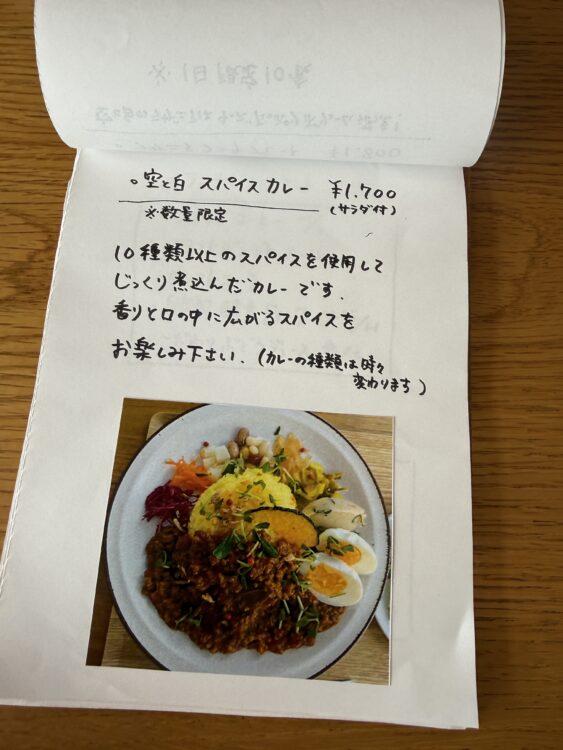 。空と白 スパイスカレー ¥1,700
※数量限定 (サラダ付)
10種類以上のスパイスを使用して
じっくり煮込んだカレーです.
香りと口の中に広がるスパイスを
お楽しみ下さい. (カレーの種類は時々
変わります)
※1日限定10食